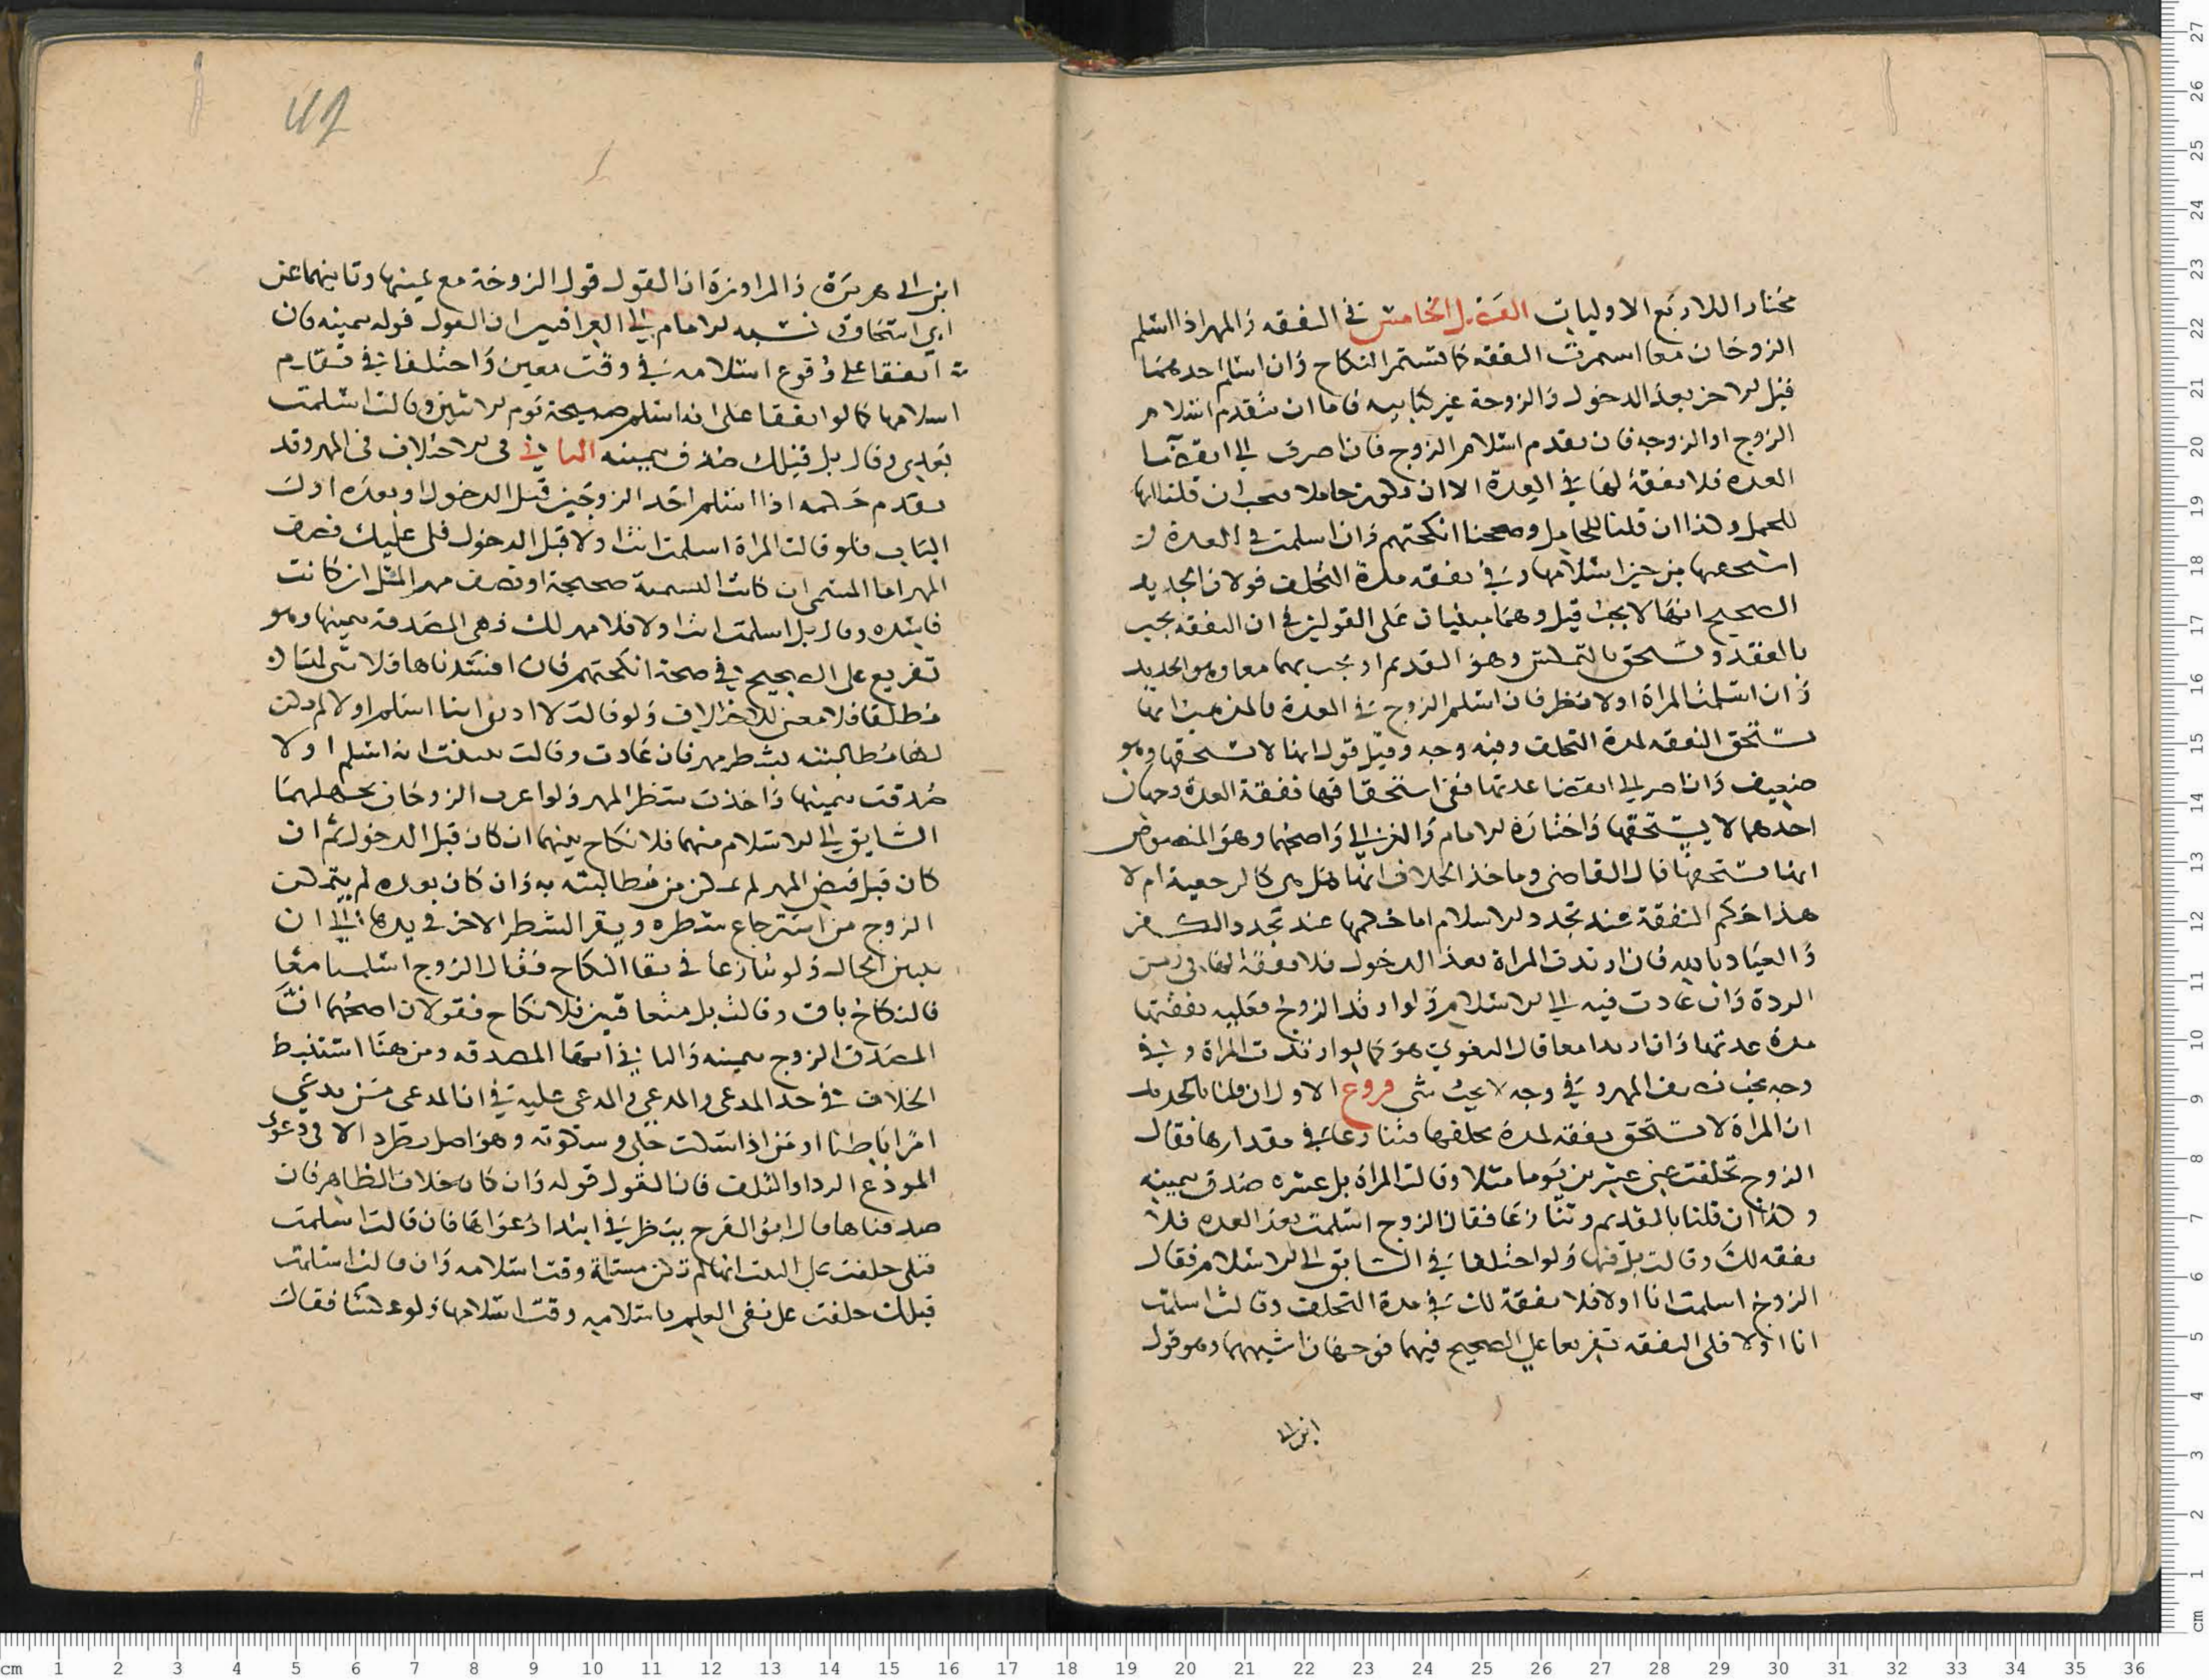 مختارا للاربع الاوليات الفصل الخامس في النفقة والمهر اذا اسلم
الزوجان معا استمرت النفقة كما تستمر النكاح وان اسلم احدهما
قبل الاخر بعد الدخول والزوجة غير كتابيه فاما ان يتقدم اسلام
الزوج او الزوجه فان تقدم اسلام الزوج فان اصرت الى انقضا
العده فلا نفقة لها في العدة الا ان تكون حاملا فتجب ان قلنا انها
للحمل وكذا ان قلنا للحامل وصححنا انكحتهم وان اسلمت في العدة
استحقتها من حين اسلامها وفي نفقه مدة التخلف قولان الجديد
الصحيح انها لا يجب قيل وهما مبنيان على القولين في ان النفقه تجب
بالعقد وتستحق بالتمكين وهو القديم او يجب بهما معا وهو الجديد
وان اسلمت المراة اولا نظر فان اسلم الزوج في العدة فالمذهب انها
تستحق النفقه لمدة التخلف وفيه وجه وقيل قول انها لا تستحقها وهو
ضعيف وان اصر الى انقضا عدتها ففي استحقاقها نفقة العدة وجهان
احدهما لا يستحقها واختاره الامام والغزالي واصحهما وهو المنصوص
انها تستحقها قال القاضي وماخذ الخلاف انها هل هي كالرجعية ام لا
هذا حكم النفقة عند تجدد الاسلام اما حكمها عند تجدد الكفر
والعياذ بالله فان ارتدت المراة بعد الدخول فلا نفقة لها في زمن
الردة وان عادت فيه الى الاسلام ولو ارتد الزوج فعليه نفقتها
مدة عدتها وان ارتدا معا قال البغوي هو كما لو ارتدت المراة وفي
وجه يجب نصف المهر وفي وجه لا يجب شي فروع الاول ان قلنا بالجديد
ان المراة لا تستحق نفقه لمدة تخلفها فتنازعا في مقدارها فقال
الزوج تخلفت عني عشرين يوما مثلا وقالت المراة بل عشره صدق بيمينه
وكذا ان قلنا بالقديم وتنازعا فقال الزوج اسلمت بعد العده فلا
نفقه لك وقالت بل فيها ولو اختلفا في السابق الى الاسلام فقال
الزوج اسلمت انا اولا فلا نفقة لك في مدة التخلف وقالت اسلمت
انا اولا فلي النفقه تفريعا على الصحيح فيهما فوجهان اشبههما وهو قول
ابن ابي
ابن ابي هريرة والمراوزة ان القول قول الزوجة مع يمينها وثانيهما عن
ابي اسحاق ونسبه الامام الى العراقيين ان القول قوله بيمينه فان
اتفقا على وقوع اسلامه في وقت معين واختلفا في تقادم
اسلامها كما لو اتفقا على انه اسلم صبيحة يوم الاثنين وقالت اسلمت
بعدي وقال بل قبلك صدق بيمينه الثاني في الاختلاف في المهر وقد
تقدم حكمه اذا اسلم احد الزوجين قبل الدخول او بعده اول
الباب فلو قالت المراة اسلمت انت اولا قبل الدخول فلي عليك نصف
المهر اما المسمى ان كانت التسمية صحيحة او نصف مهر المثل ان كانت
فاسده وقال بل اسلمت انت اولا فلا مهر لك فهي المصدقة بيمينها وهو
تفريع على الصحيح في صحة انكحتهم فان افسدناها فلا شي لها
مطلقا فلا معنى للاختلاف ولو قالت لا ادري اينا اسلم اولا لم يكن
لها مطالبته بشطر مهر فان عادت وقالت تيقنت انه اسلم اولا
صدقت بيمينها واخذت شطر المهر ولو اعترف الزوجان بجهلهما
السابق الى الاسلام منهما فلا نكاح بينهما ان كان قبل الدخول ثم ان
كان قبل قبض المهر لم تمكن من مطالبته به وان كان بعده لم يتمكن
الزوج من استرجاع شطره ويقر الشطر الاخر في يدها الى ان
يتبين الحال ولو تنازعا في بقا النكاح فقال الزوج اسلمنا معا
فالنكاح باق وقالت بل متعاقبين فلا نكاح فقولان اصحهما ان
المصدق الزوج بيمينه والثاني انها المصدقه ومن هنا استنبط
الخلاف في حد المدعي والمدعى عليه في ان المدعي من يدعي
امرا باطنا او من اذا سكت خلي وسكوته وهو اصل يطرد الا في دعوى
المودع الرد او التلف فان القول قوله وان كان خلاف الظاهر فان
صدقناها قال ابو الفرج ينظر في ابتدا دعواها فان قالت اسلمت
قبلي حلفت على البت انها لم تكن مسلمة وقت اسلامه وان قالت اسلمت
قبلك حلفت على نفي العلم باسلامه وقت اسلامها ولو عكسنا فقال